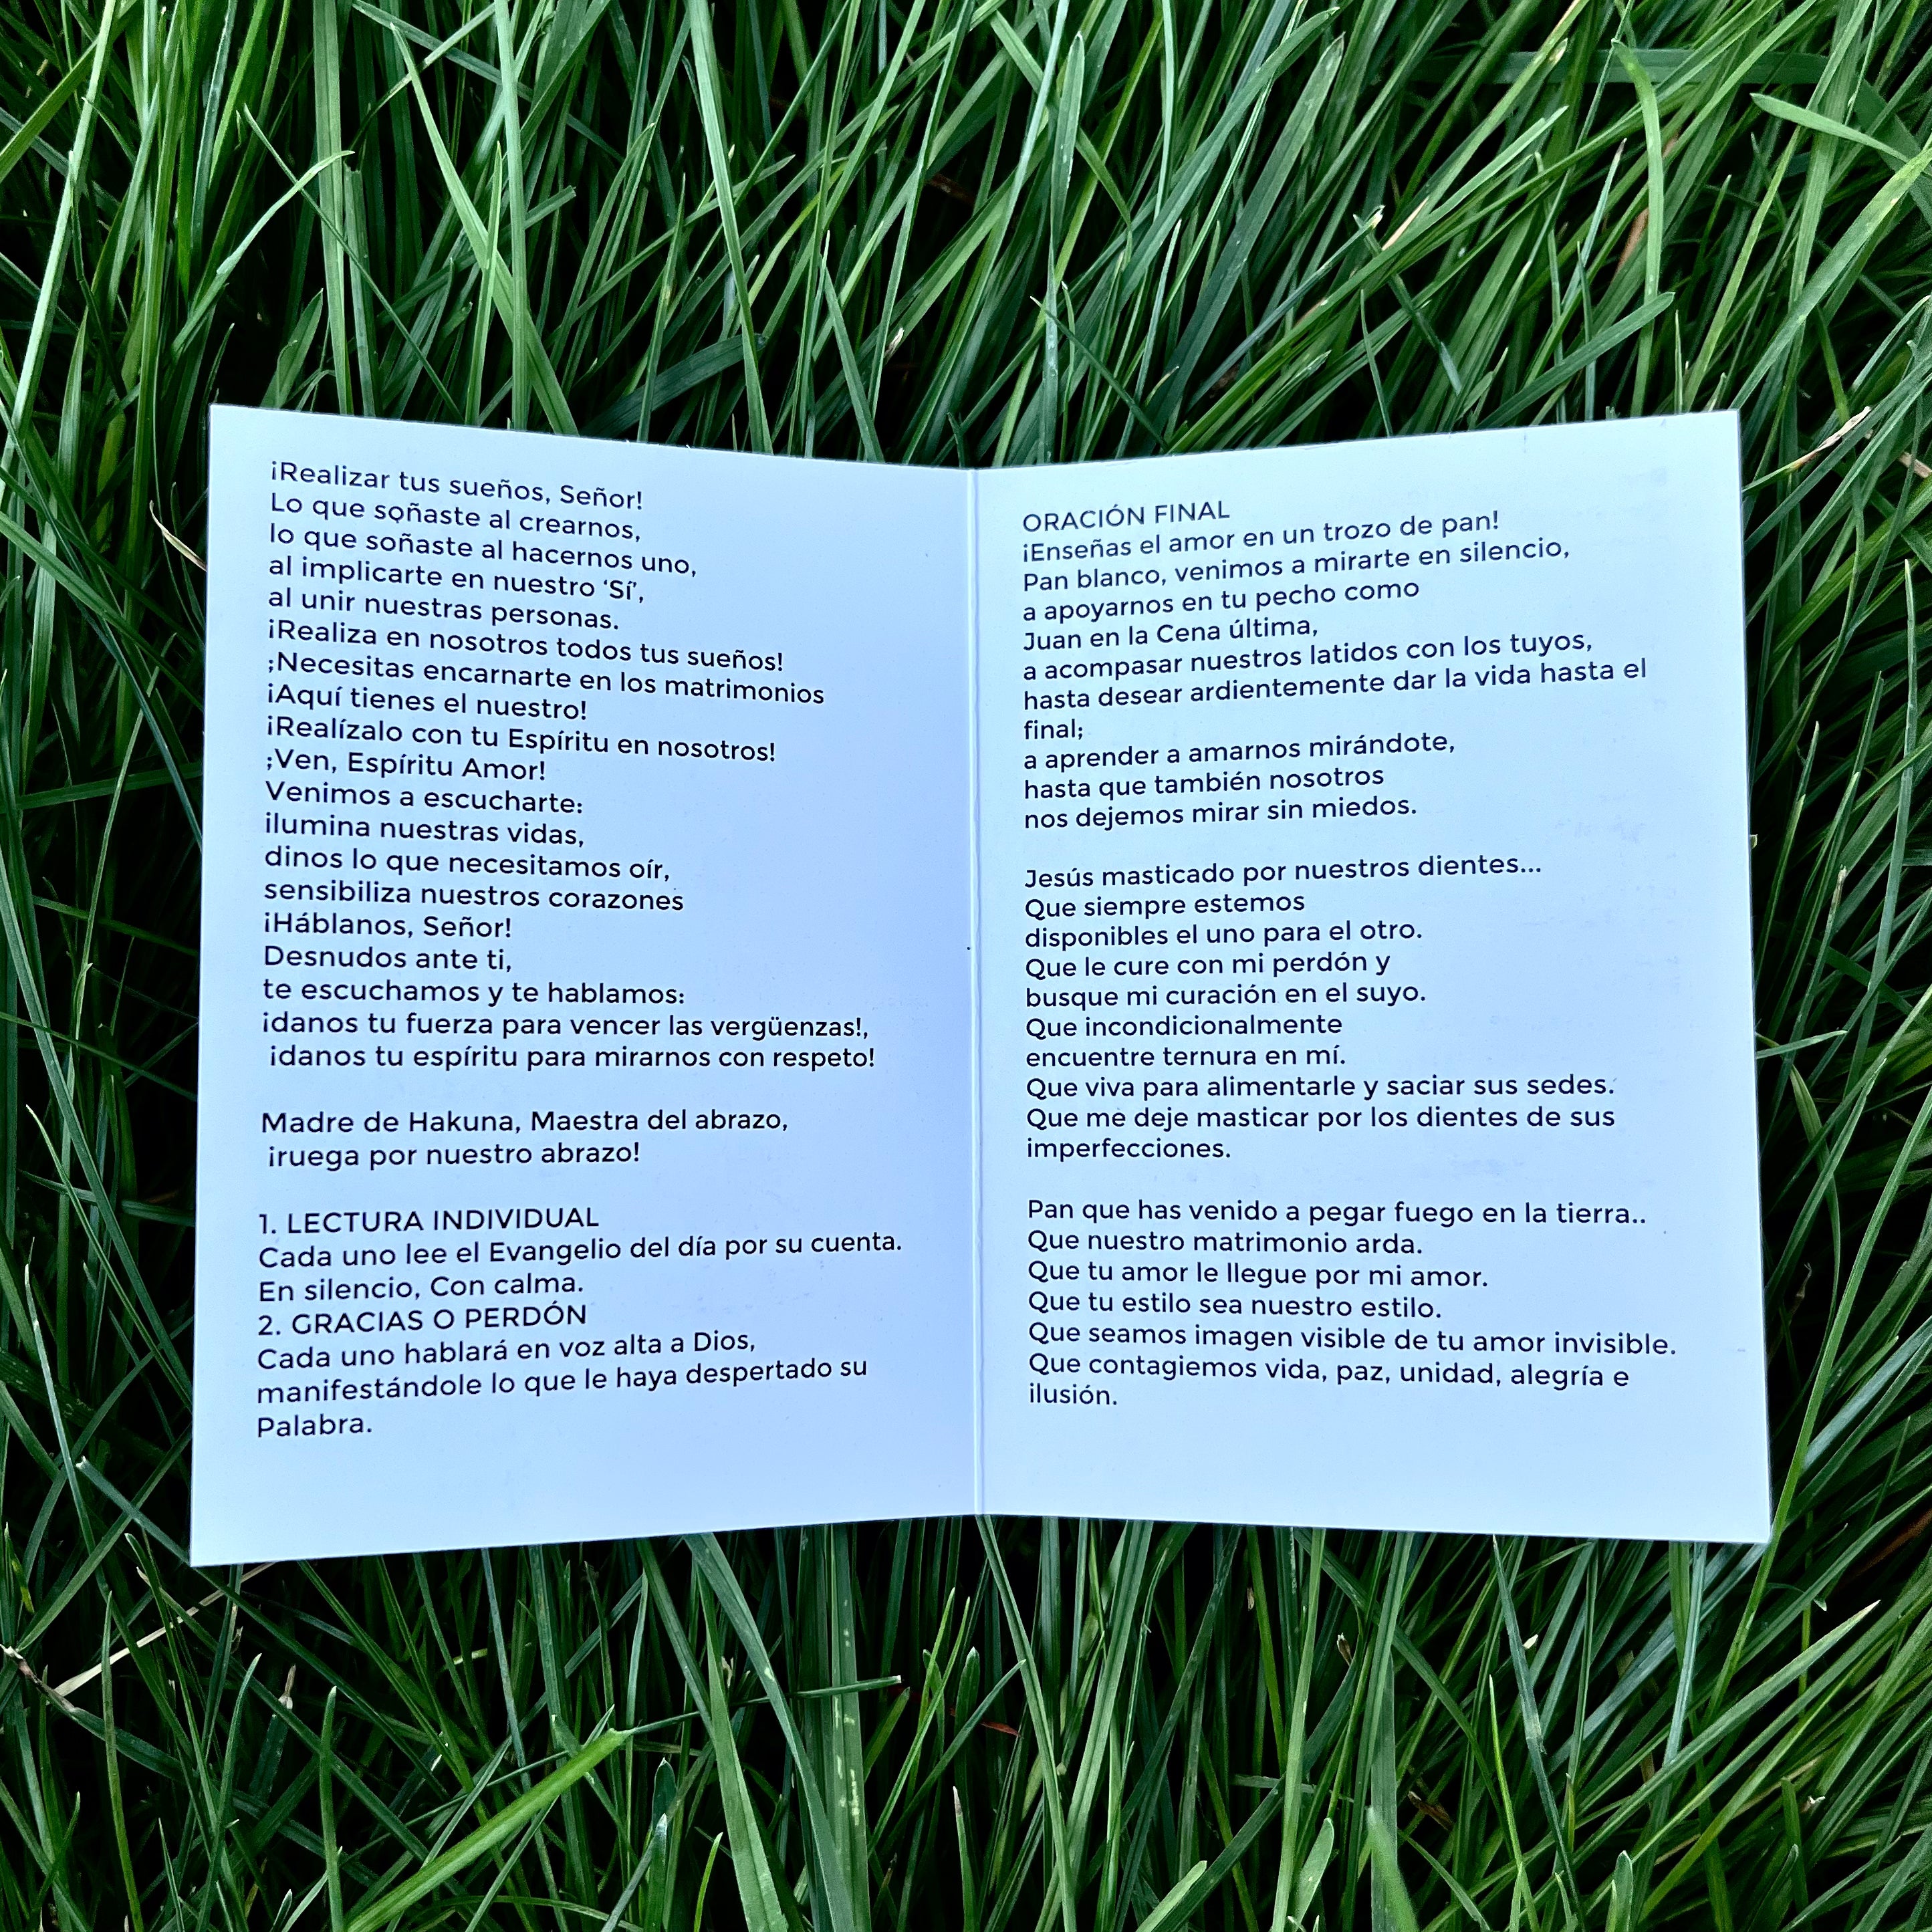 ¡Realizar tus sueños, Señor!
Lo que soñaste al crearnos,
lo que soñaste al hacernos uno,
al implicarte en nuestro ‘Sí’,
al unir nuestras personas.
¡Realiza en nosotros todos tus sueños!
;Necesitas encarnarte en los matrimonios
¡Aquí tienes el nuestro!
¡Realízalo con tu Espíritu en nosotros!
;Ven, Espíritu Amor!
Venimos a escucharte:
ilumina nuestras vidas,
dinos lo que necesitamos oír,
sensibiliza nuestros corazones
¡Háblanos, Señor!
Desnudos ante ti,
te escuchamos y te hablamos:
¡danos tu fuerza para vencer las vergüenzas!,
¡danos tu espíritu para mirarnos con respeto!
Madre de Hakuna, Maestra del abrazo,
¡ruega por nuestro abrazo!
1. LECTURA INDIVIDUAL
Cada uno lee el Evangelio del día por su cuenta.
En silencio, Con calma.
2. GRACIAS O PERDÓN
Cada uno hablará en voz alta a Dios,
manifestándole lo que le haya despertado su
Palabra.
ORACIÓN FINAL
¡Enseñas el amor en un trozo de pan!
Pan blanco, venimos a mirarte en silencio,
a apoyarnos en tu pecho como
Juan en la Cena última,
a acompasar nuestros latidos con los tuyos,
hasta desear ardientemente dar la vida hasta el
final;
a aprender a amarnos mirándote,
hasta que también nosotros
nos dejemos mirar sin miedos.
Jesús masticado por nuestros dientes...
Que siempre estemos
disponibles el uno para el otro.
Que le cure con mi perdón y
busque mi curación en el suyo.
Que incondicionalmente
encuentre ternura en mí.
Que viva para alimentarle y saciar sus sedes.
Que me deje masticar por los dientes de sus
imperfecciones.
Pan que has venido a pegar fuego en la tierra..
Que nuestro matrimonio arda.
Que tu amor le llegue por mi amor.
Que tu estilo sea nuestro estilo.
Que seamos imagen visible de tu amor invisible.
Que contagiemos vida, paz, unidad, alegría e
ilusión.